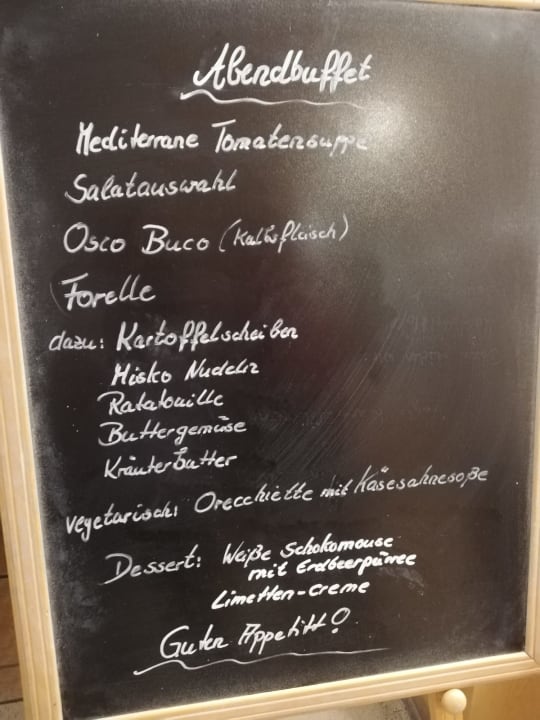 Abendbuffet
Mediterrane Tomatensuppe
Salatauswahl
Osco Buco (Kalbsfleisch)
Forelle
dazu: Kartoffelscheiben
Misko Nudeln
Ratatouille
Buttergemüse
Kräuterbutter
vegetarisch: Orecchiette mit Käsesahnesoße
Dessert: Weiße Schokomouse
mit Erdbeerpürree
Limetten-creme
Guten Appetitt!